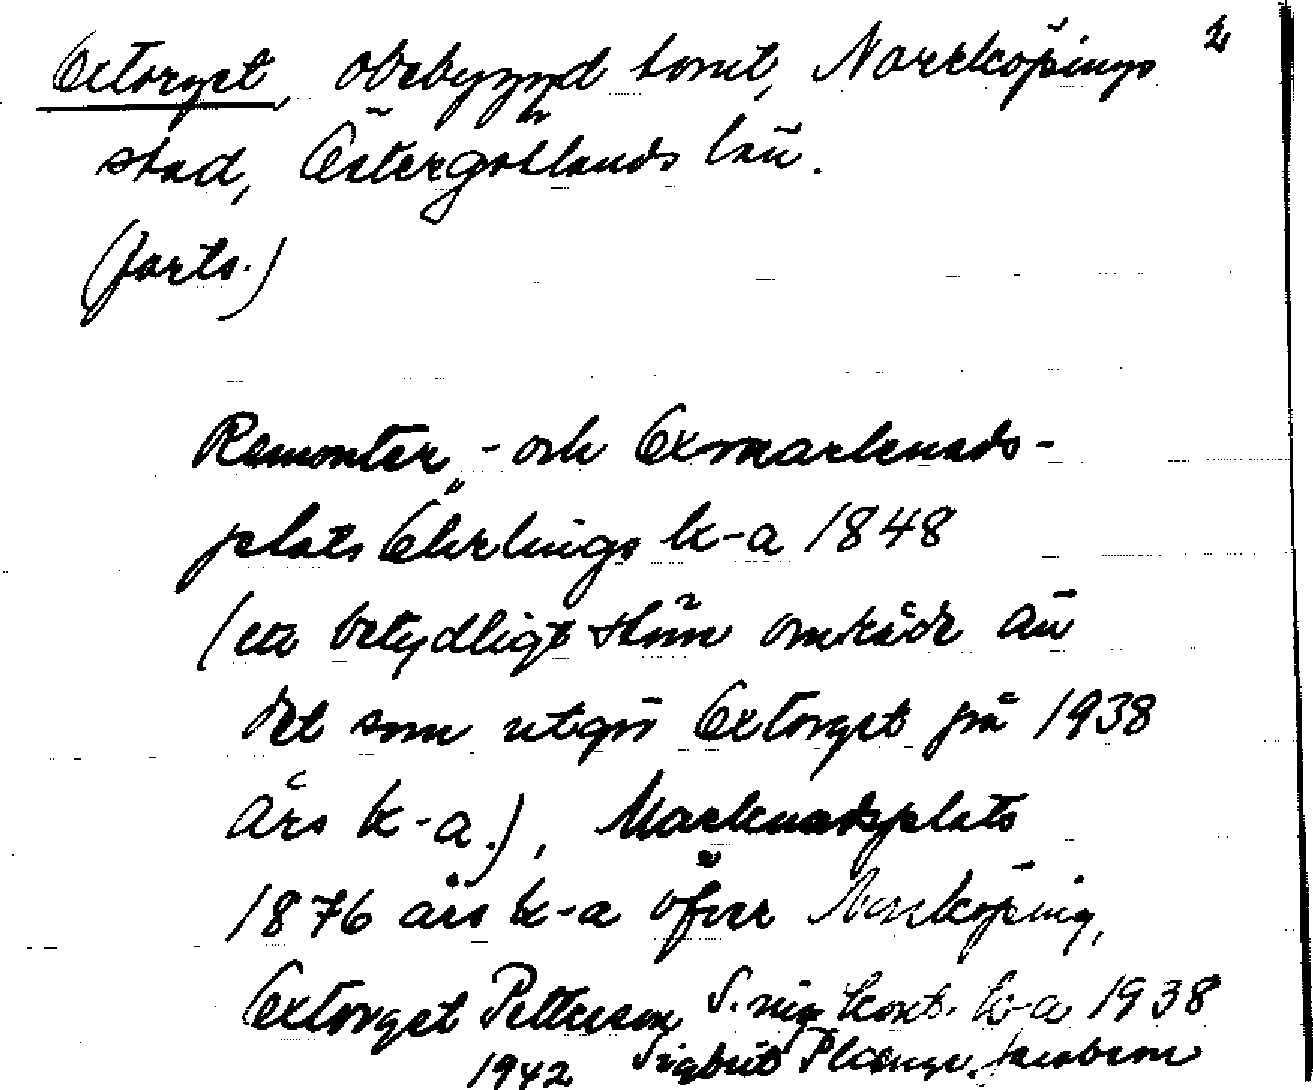 Oxtorget, obebyggd tomt, Norrköpings 2
stad, Östergötlands län.
(forts.)
Remonter- och Oxmarknads-
plats Ehrlings k-a 1848
(ett betydligt större område än
det som utgör Oxtorget på 1938
års k-a.), Marknadsplats
1876 års k-a öfver Norrköping,
Oxtorget Petterson S. k-a 1938
1942 Sigbrit Plænge Jacobson